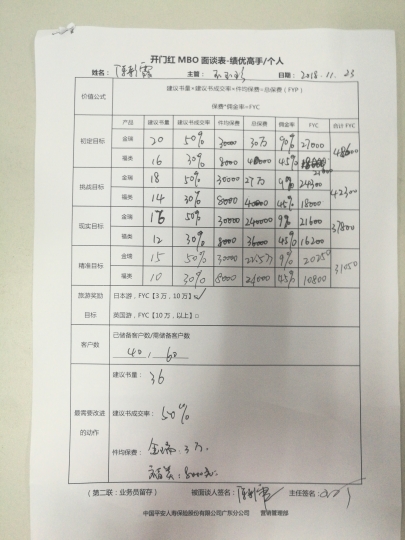 开门红 MBO 面谈表-绩优高手/个人
姓名： 主管： 日期：2018.11.23
价值公式 建议书量×建议书成交率×件均保费=总保费（FYP）
保费*佣金率=FYC
产品 建议书量 建议书成交率 件均保费 总保费 佣金率 FYC 合计 FYC
初定目标 金瑞 20 50% 30000 30万 9% 27000
福类 16 30% 8000 45%
挑战目标 金瑞 18 50% 30000 27万 9% 24300 42300
福类 14 30% 8000 40000 45% 18000
现实目标 金瑞 16 50% 30000 240000 9% 21600 37800
福类 12 30% 8000 36000 45% 16200
精准目标 金瑞 15 50% 30000 22.5万 9% 20250 31050
福类 10 30% 8000 24000 45% 10800
旅游奖励 日本游，FYC【3 万，10 万】
目标 英国游，FYC【10 万，以上】□
客户数 已储备客户数/需储备客户数
40 / 60
建议书量：36
最需要改进 建议书成交率：50%
的动作
件均保费：金瑞：3万
福类：8000元
（第二联：业务员留存） 被面谈人签名： 主任签名：
中国平安人寿保险股份有限公司广东分公司 营销管理部